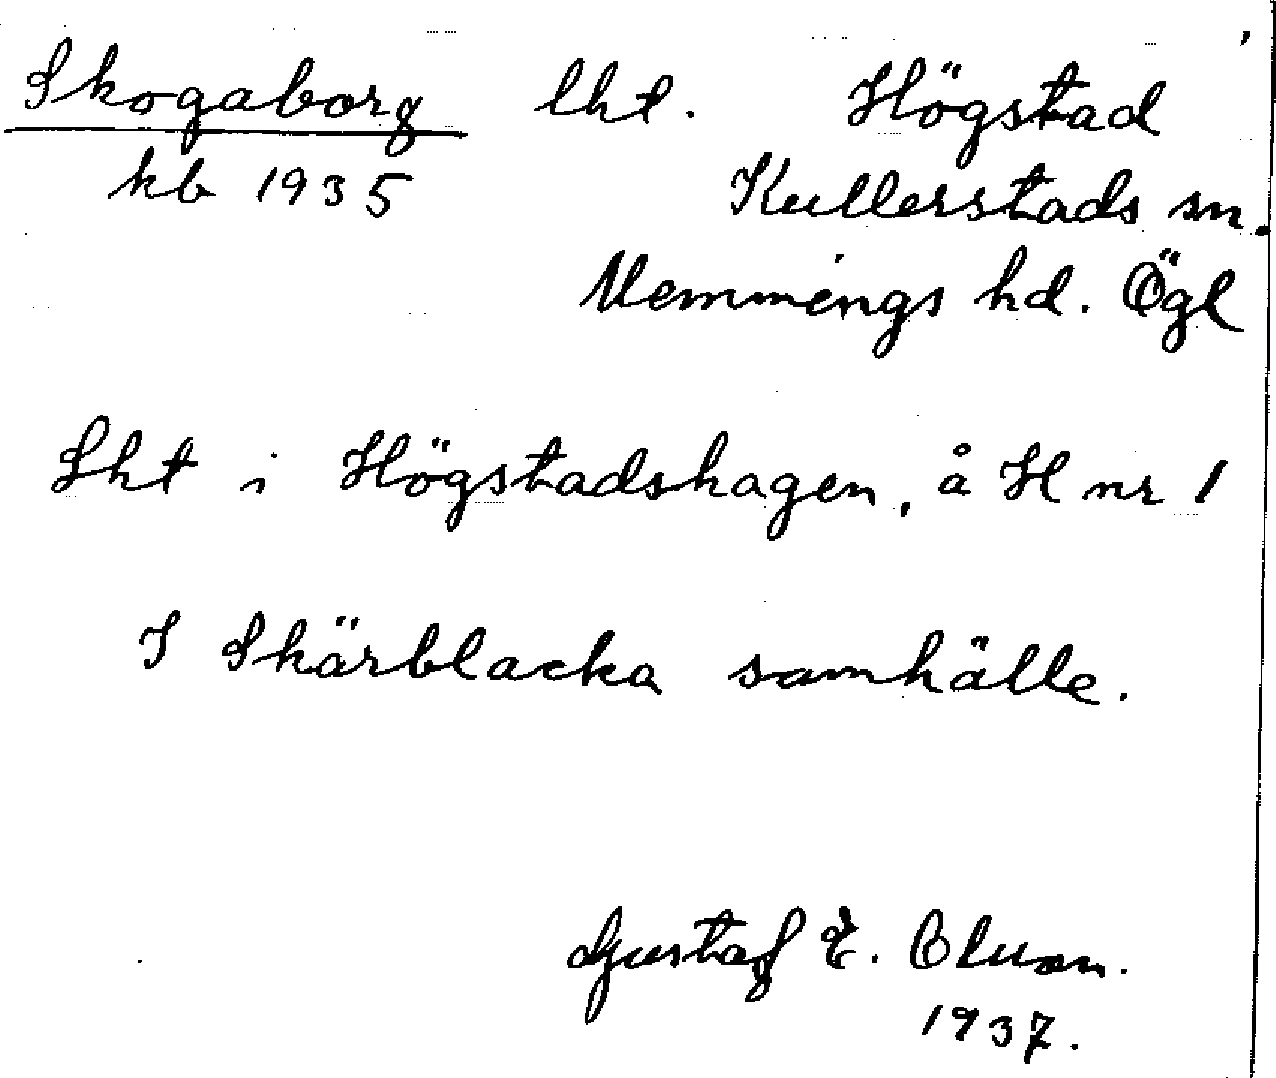 Skogaborg lht. Högstad
kb 1935 Kullerstads sn.
Memmings hd. Ögl
Lht i Högstadshagen, å H nr 1
I Skärblacka samhälle.
Gustaf E. Olson.
1937.